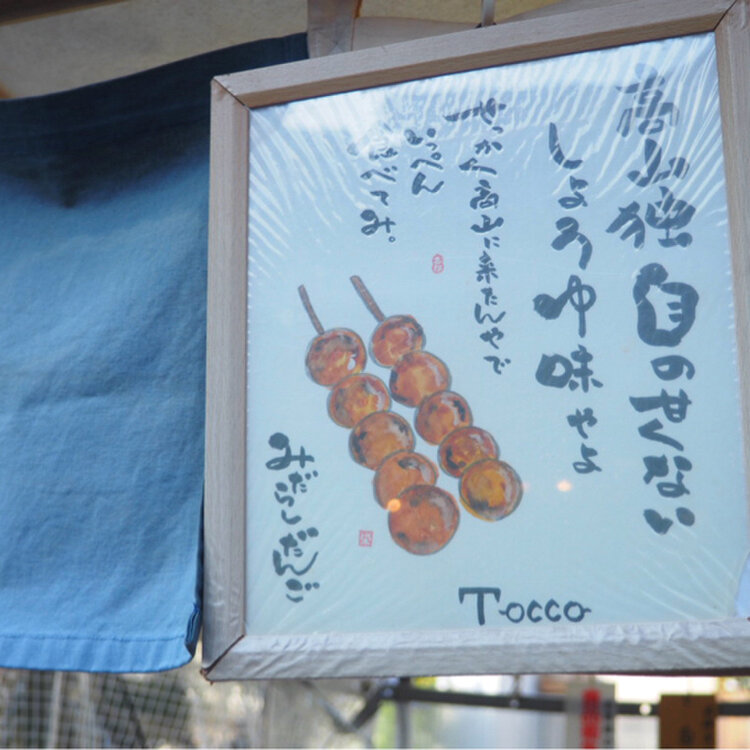 高山独自の甘くない
しょうゆ味やよ
せっかく高山に来たんやで
いっぺん
食べてみ。
みだらしだんご
Tocco